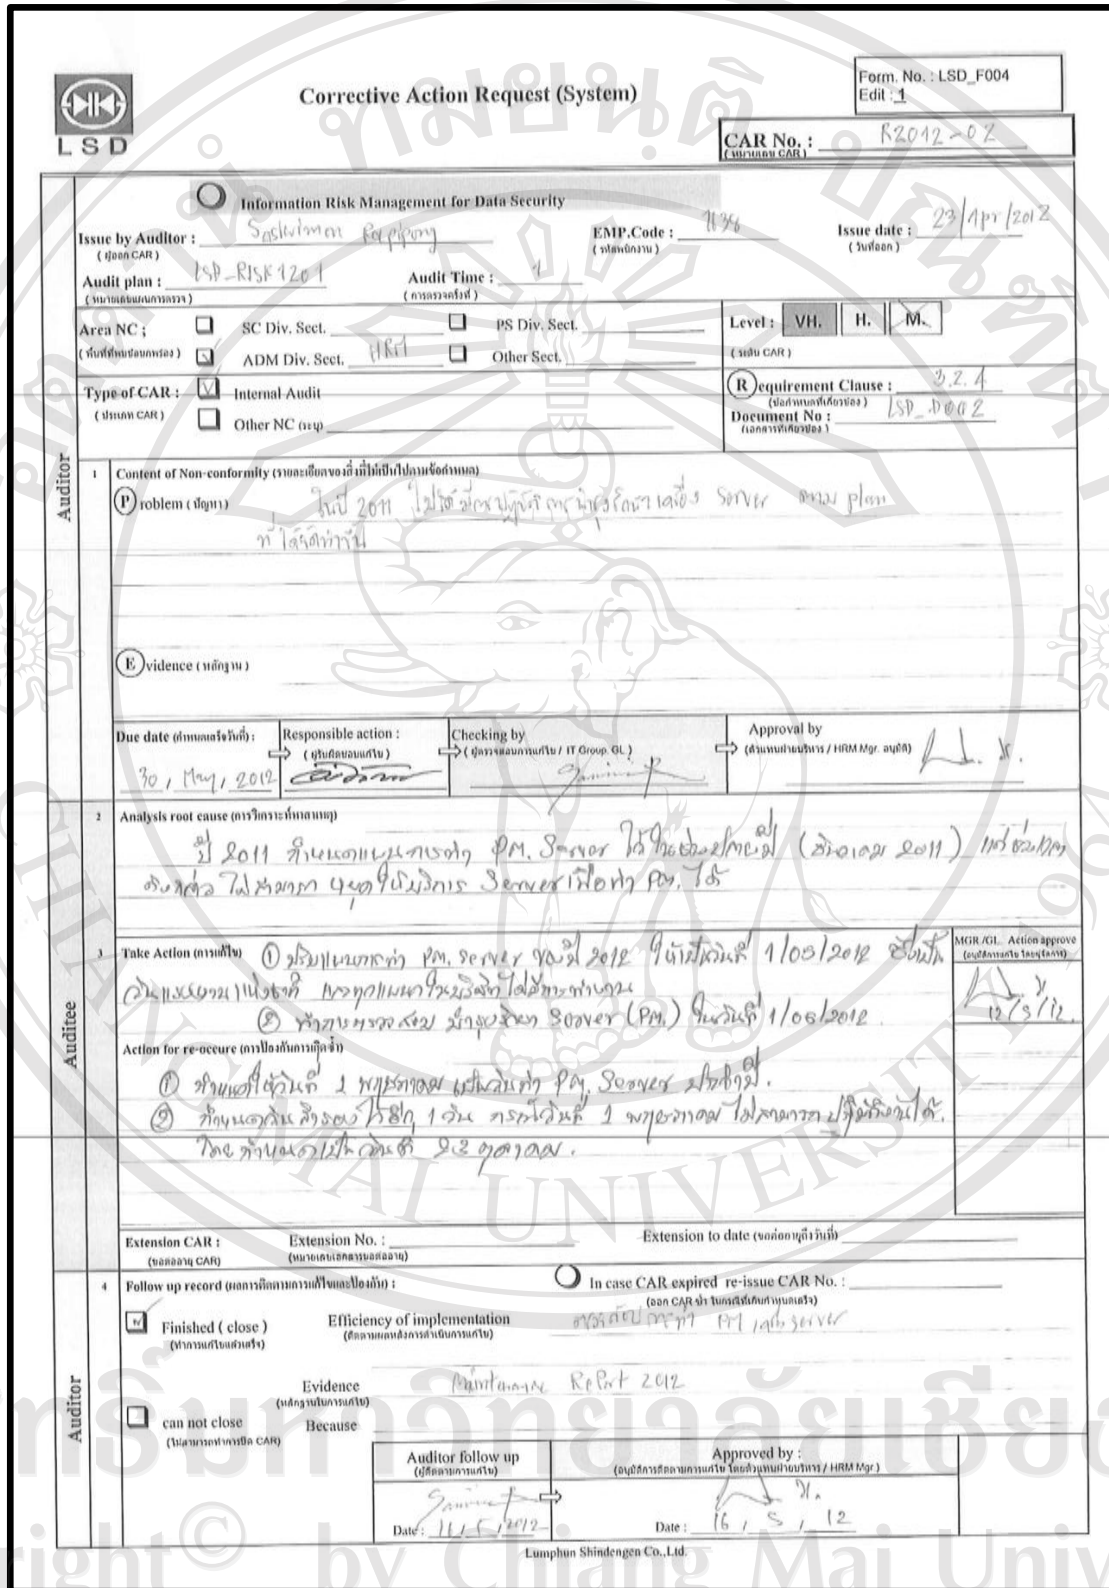 Form. No. : LSD_F004
Edit : 1
LSD
Corrective Action Request (System)
CAR No. : R2012-02
( หมายเลข CAR )
Information Risk Management for Data Security
Issue by Auditor :
( ผู้ออก CAR )
EMP.Code :
( รหัสพนักงาน )
Issue date : 23/Apr/2012
( วันที่ออก )
Audit plan : LSD-RISK1201
( หมายเลขแผนการตรวจ )
Audit Time : 1
( การตรวจครั้งที่ )
Area NC ;
( พื้นที่ที่พบข้อบกพร่อง )
SC Div. Sect.
PS Div. Sect.
ADM Div. Sect. HRM
Other Sect.
Level : VH. H. M.
( ระดับ CAR )
Type of CAR :
( ประเภท CAR )
Internal Audit
Other NC (ระบุ)
Requirement Clause : 3.2.4
(ข้อกำหนดที่เกี่ยวข้อง )
Document No : LSD_D002
(เอกสารที่เกี่ยวข้อง )
Auditor
1 Content of Non-conformity (รายละเอียดของสิ่งที่ไม่เป็นไปตามข้อกำหนด)
Problem ( ปัญหา ) ในปี 2011 ไม่ได้มีการปฏิบัติการบำรุงรักษาเครื่อง Server ตาม plan
ที่ได้จัดทำขึ้น
Evidence ( หลักฐาน )
Due date (กำหนดเสร็จวันที่) :
30 , May , 2012
Responsible action :
( ผู้รับผิดชอบแก้ไข )
Checking by
( ผู้ตรวจสอบการแก้ไข / IT Group. GL )
Approval by
(ตัวแทนฝ่ายบริหาร / HRM Mgr. อนุมัติ)
Auditee
2 Analysis root cause (การวิเคราะห์หาสาเหตุ)
ปี 2011 กำหนดแผนการทำ PM. Server ไว้ในช่วงปลายปี (ธันวาคม 2011) แต่ช่วงเวลา
ดังกล่าว ไม่สามารถ หยุดให้บริการ Server เพื่อทำ PM. ได้
3 Take Action (การแก้ไข) ① ปรับแผนการทำ PM. Server ของปี 2012 ให้เป็นวันที่ 1/05/2012 ซึ่งเป็น
วันแรงงานแห่งชาติ ทุกแผนกในบริษัทไม่มีการทำงาน
② ทำการตรวจสอบ บำรุงรักษา Server (PM.) ในวันที่ 1/05/2012
MGR /GL Action approve
(อนุมัติการแก้ไข โดยผู้จัดการ)
12/5/12.
Action for re-occure (การป้องกันการเกิดซ้ำ)
① กำหนดให้วันที่ 1 พฤษภาคม เป็นวันทำ PM. Server ประจำปี.
② กำหนดวันสำรองไว้อีก 1 วัน กรณีวันที่ 1 พฤษภาคม ไม่สามารถปฏิบัติงานได้.
โดย กำหนดเป็นวันที่ 23 ตุลาคม.
Extension CAR :
(ขอต่ออายุ CAR)
Extension No. :
(หมายเลขเอกสารขอต่ออายุ)
Extension to date (ขอต่ออายุถึงวันที่)
Auditor
4 Follow up record (ผลการติดตามการแก้ไขและป้องกัน) :
In case CAR expired re-issue CAR No. :
(ออก CAR ซ้ำ ในกรณีที่เกินกำหนดเสร็จ)
Finished ( close )
(ทำการแก้ไขแล้วเสร็จ)
Efficiency of implementation
(ติดตามผลหลังการดำเนินการแก้ไข)
การทำ PM เครื่อง server
Evidence Maintenance Report 2012
(หลักฐานในการแก้ไข)
can not close
(ไม่สามารถทำการปิด CAR)
Because
Auditor follow up
(ผู้ติดตามการแก้ไข)
Date : 16/5/2012
Approved by :
(อนุมัติการติดตามการแก้ไข โดยตัวแทนฝ่ายบริหาร / HRM Mgr)
Date : 16 / 5 / 12
Lumphun Shindengen Co.,Ltd.
CHIANG MAI UNIVERSITY
right© by Chiang Mai Univ